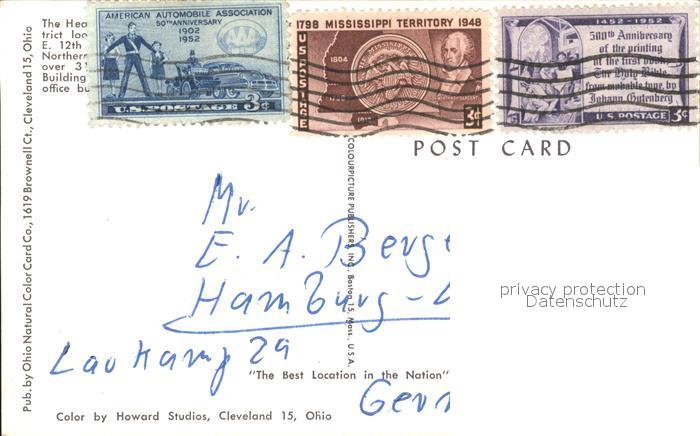 AMERICAN AUTOMOBILE ASSOCIATION
50TH ANNIVERSARY
1902
1952
U.S. POSTAGE 3¢
1798 MISSISSIPPI TERRITORY 1948
U.S. POSTAGE
1804
3¢
1452-1952
500th Anniversary
of the printing
of the first book,
The Holy Bible,
from movable type, by
Johann Gutenberg
U.S. POSTAGE 3¢
The Hea
trict loc
E. 12th
Northern
over 3
Building
office bu
POST CARD
Mr.
E. A. Berg
Hamburg-
Laukamp 29
"The Best Location in the Nation"
Color by Howard Studios, Cleveland 15, Ohio
Pub. by Ohio Natural Color Card Co., 1619 Brownell Ct., Cleveland 15, Ohio
COLOURPICTURE PUBLISHERS, INC., Boston 15, Mass., U.S.A.
privacy protection
Datenschutz